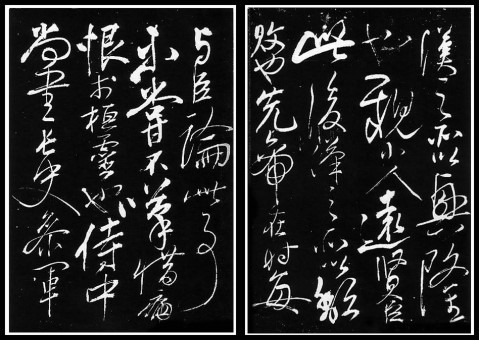 漢之所以興隆
也親小人遠賢臣
此後漢之所以傾
敗也先帝在時每
與臣論此事
未嘗不歎惜痛
恨於桓靈也侍中
尚書長史參軍